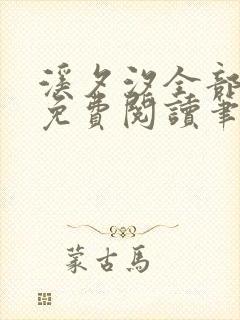 溪夕汐全部
免費閱讀筆
蒙古馬